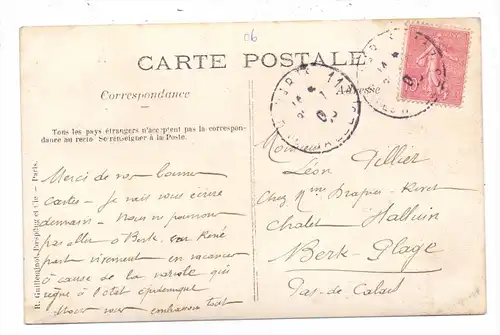 06
CARTE POSTALE
Correspondance
Adresse
Tous les pays étrangers n'acceptent pas la correspon-
dance au recto Se renseigner à la Poste.
R. Guilleminot, Bœspflug et Cie — Paris.
Merci de vos bonnes
cartes — je vais vous écrire
demain — Nous ne pouvons
pas aller à Berk, car René
part vivement en vacances
à cause de la variole qui
règne à l'état épidémique
Nous vous embrassons tous
Monsieur
Léon Tillier
Chez Mme Drapier
Chalet Halluin
Berk-Plage
Pas-de-Calais
10